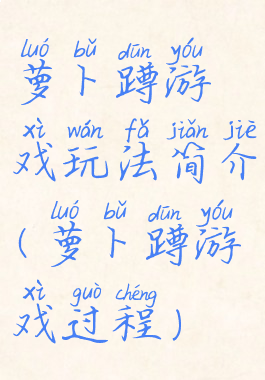 luó bǔ dūn yóu
萝卜蹲游
xì wán fǎ jiǎn jiè
戏玩法简介
luó bǔ dūn yóu
(萝卜蹲游
xì guò chéng
戏过程)